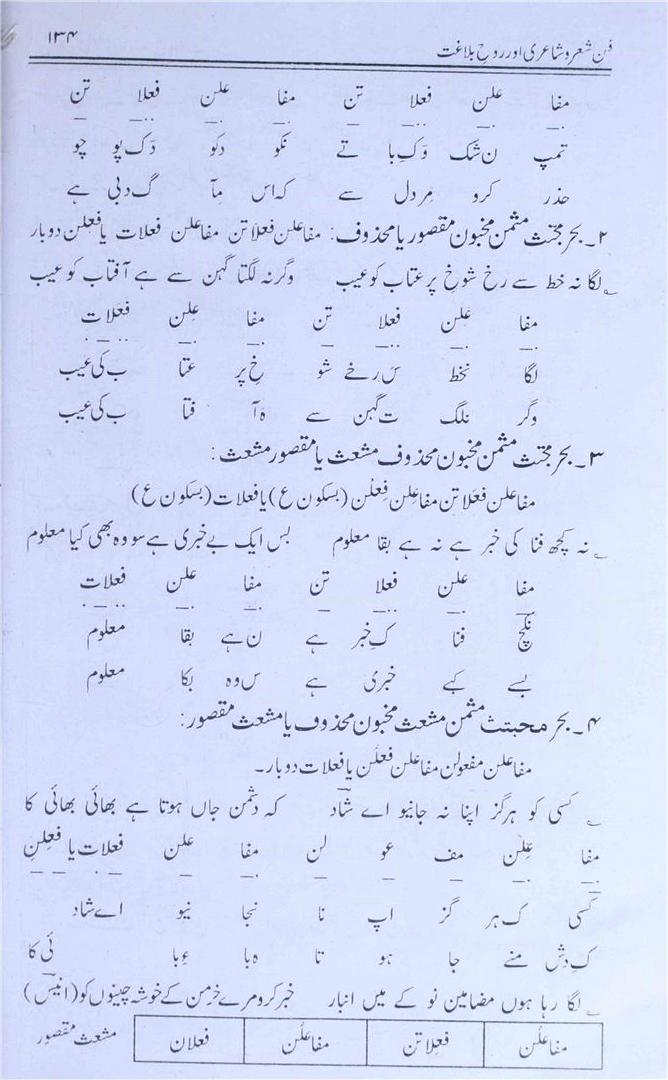 فن شعر و شاعری اور روحِ بلاغت ۱۳۴
مفا علن فعلا تن مفا علن فعلا تن
تمپ ن شک وَ کِ با تے نکو دکو دَ ک پو چو
حذر کرو مِر دل سے کہ اس مِآ گ دبی ہے
۲۔ بحر مجتث مثمن مخبون مقصور یا محذوف: مفاعلن فعلاتن مفاعلن فعلات یا فعلن دوبار
لگا نہ خط سے رخ شوخ پر عتاب کو عیب وگرنہ لگتا گہن سے ہے آفتاب کو عیب
مفا علن فعلا تن مفا علن فعلات
لگا نخط سِ رخے شو خ پر عتا ب کی عیب
وگر نلگ ت گہن سے ہ آ فتا ب کی عیب
۳۔ بحر مجتث مثمن مخبون محذوف مشعث یا مقصور مشعث:
مفاعلن فعلاتن مفاعلن فعلن (بسکون ع) یا فعلات (بسکون ع)
نہ کچھ فنا کی خبر ہے نہ ہے بقا معلوم بس ایک بے خبری ہے سو وہ بھی کیا معلوم
مفا علن فعلا تن مفا علن فعلات
نکچ فنا کِ خبر ہے ن ہے بقا معلوم
بسے کبے خبری ہے س وہ بکا معلوم
۴۔ بحر محبتث مثمن مشعث مخبون محذوف یا مشعث مقصور:
مفاعلن مفعولن مفاعلن فعلن یا فعلات دوبار۔
کسی کو ہرگز اپنا نہ جانیو اے شاد کہ دشمن جاں ہوتا ہے بھائی بھائی کا
مفا علن مف عو لن مفا علن فعلات یا فعلن
کسی ک ہر گز اپ نا نجا نیو اے شاد
ک دش منے جا ہو تا ہ با ءِ با ئی کا
لگا رہا ہوں مضامین نو کے میں انبار خبر کرو مرے خرمن کے خوشہ چینوں کو (انیس)
مفاعلن فعلاتن مفاعلن فعلان مشعث مقصور